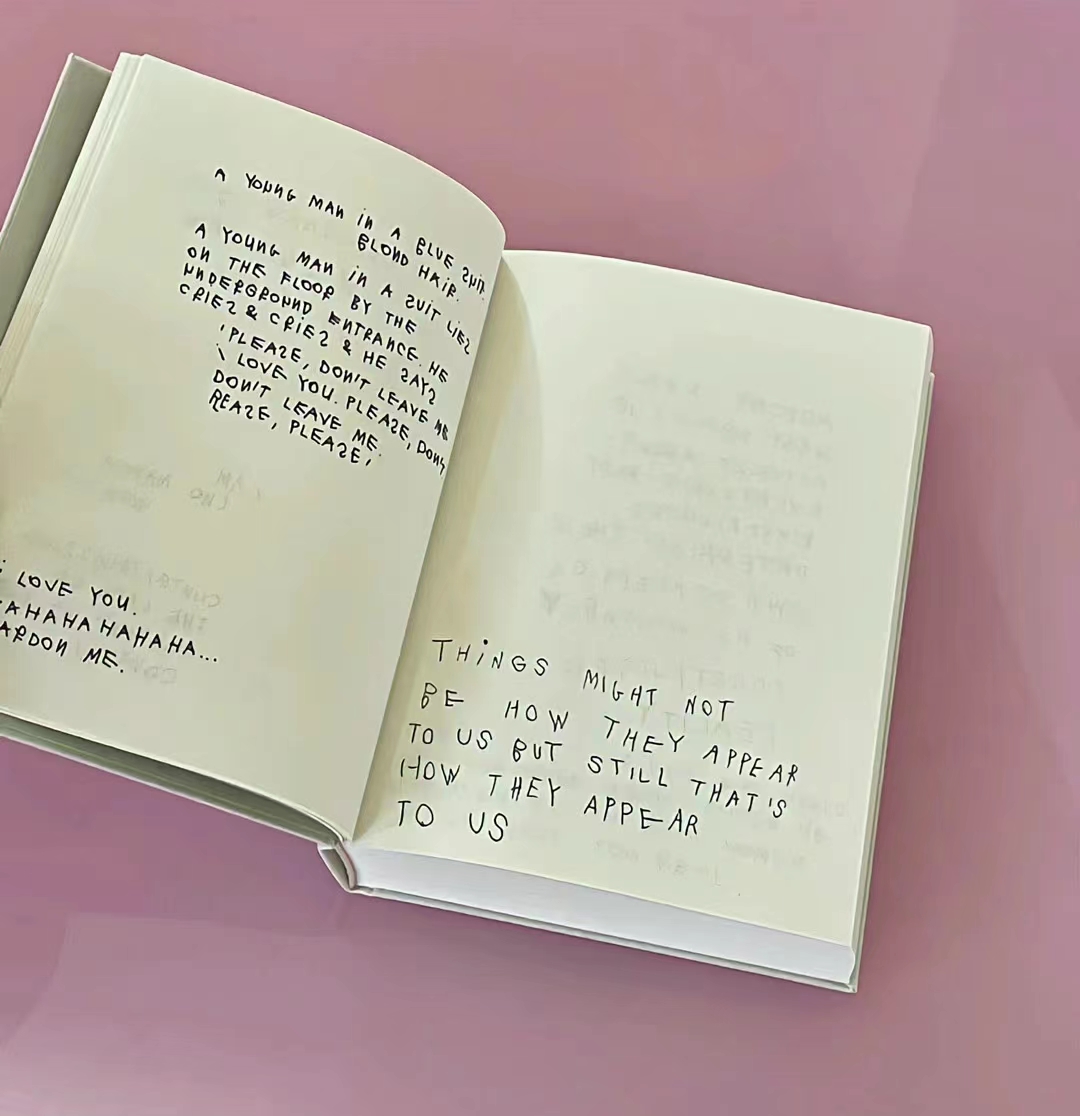 A YOUNG MAN iN A BLUE SUIT.
BLOND HAIR.
A YOUNG MAN iN A SUIT LiES
ON THE FLOOR BY THE
UNDERGROUND ENTRANCE. HE
CRiES & CRiES & HE SAYS
'PLEASE, DON'T LEAVE ME
i LOVE YOU. PLEASE, DON'T
DON'T LEAVE ME.
REASE, PLEASE,'
i LOVE YOU.
AHAHAHAHAHA...
ARDON ME.
THiNGS MIGHT NOT
BE HOW THEY APPEAR
TO US BUT STILL THAT'S
HOW THEY APPEAR
TO US